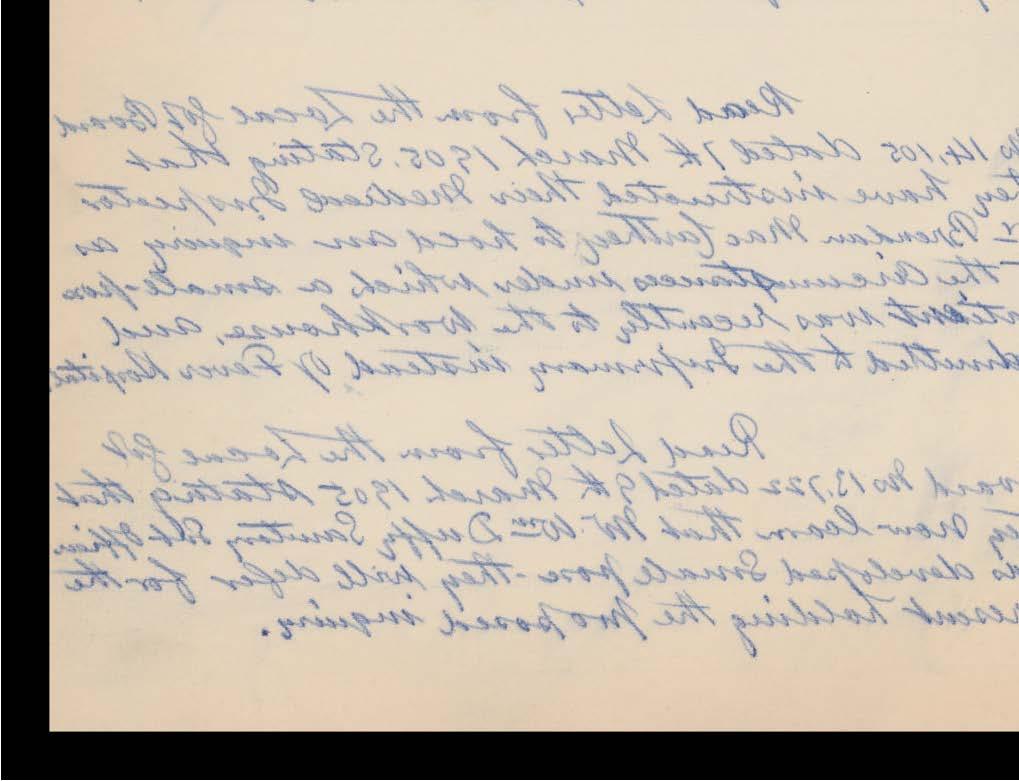 Read Letter from the Local Gov. Board
No 14,105 dated 7th March 1905. Stating that
they have instructed their Medical Inspector
Dr Brendan MacCarthy to hold an inquiry as
the Circumstances under which a small-pox
patient was recently to the Workhouse, and
admitted to the Infirmary instead of Fever Hospital
Read Letter from the Local Gov.
Board No 15,722 dated 9th March 1905 Stating that
they now learn that Mr. Wm Duffy, Sanitary Sub Officer
has developed Small pox - they will defer for the
present holding the proposed inquiry.